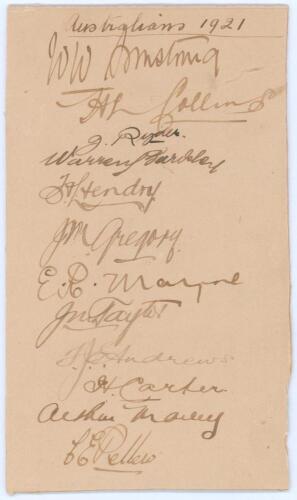 Australians 1921
W W Armstrong
H L Collins
J. Ryder.
Warren Bardsley
H Hendry
J M Gregory.
E. R. Mayne
J M Taylor
T J E Andrews
H. Carter
Arthur Mailey
C E Pellew